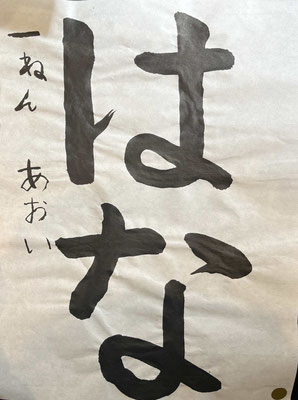 はな
一ねん あおい